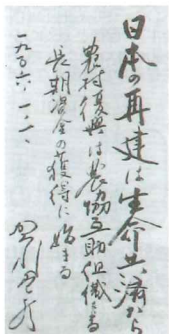 日本の再建は生命共済から
農村復興は農協互助組織による
長期資金の獲得に始まる
一九五六・一・二、
賀川豊彦